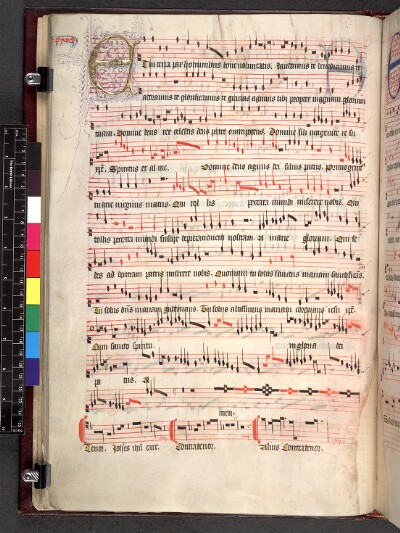 Et in terra pax hominibus bone voluntatis. Laudamus te benedicimus te
adoramus te glorificamus te gracias agimus tibi propter magnam gloriam
tuam. Domine deus rex celestis deus pater omnipotens. Domine fili unigenite
Spiritus et alme. Domine deus agnus dei filius patris. primogenitus
marie virginis matris. Qui tol lis peccata mundi miserere nobis. Qui
tollis peccata mundi suscipe deprecationem nostram ad marie gloriam. Qui se
des ad dexteram patris miserere nobis. Quoniam tu solus sanctus mariam sanctificans.
Tu solus dns mariam gubernans. Tu solus altissimus mariam coronans
Cum sancto spiritu. in gloria dei
pa tris. A
men.
Tenor. Contratenor. Alius Contratenor.